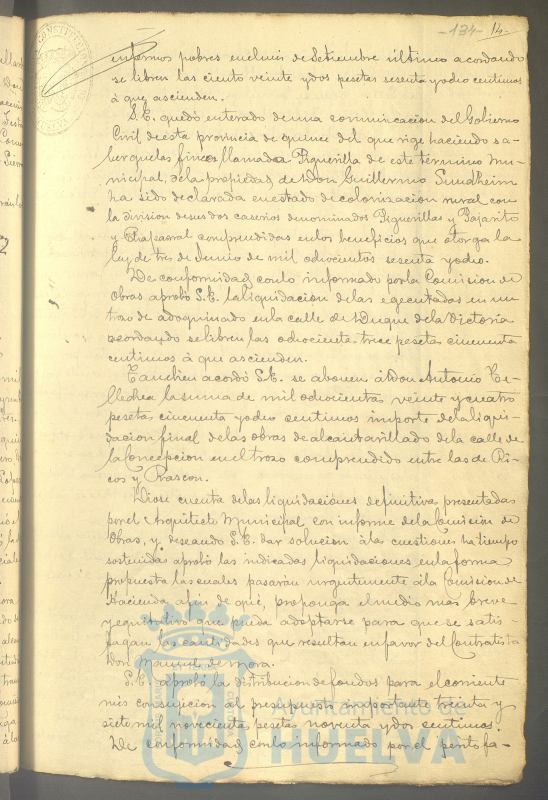 -134- 14-
enfermos pobres en el mes de Setiembre último acordando
se libren las ciento veinte y dos pesetas sesenta y ocho centimos
á que ascienden.
S.E. quedó enterado de una comunicacion del Gobierno
Civil de esta provincia de quince del que rige haciendo sa-
ber que las fincas llamada Peguerilla de este término mu-
nicipal, de la propiedad de Don Guillermo Sundheim
ha sido declarada en estado de colonizacion rural con
la division de sus dos caserios denominados Peguerillas y Pajarito
y Chaparral comprendidas en los beneficios que otorga la
ley de tres de Junio de mil ochocientos sesenta y ocho.
De conformidad con lo informado por la Comision de
Obras aprobó S.E. la liquidacion de las egecutadas en un
trozo de adoquinado en la calle de Duque de la Victoria
acordando se libren las ochocientas trece pesetas cincuenta
centimos á que ascienden.
Tambien acordó S.E. se abonen á Don Antonio Te-
llechea la suma de mil ochocientas veinte y cuatro
pesetas cincuenta y ocho centimos importe de la liqui-
dacion final de las obras de alcantarillado de la calle de
la Concepcion en el trozo comprendido entre las de Ri-
cos y Rascon.
Diose cuenta de las liquidaciones definitivas presentadas
por el Arquitecto Municipal con informe de la Comision de
Obras, y deseando S.E. dar solucion á las cuestiones ha tiempo
sostenidas aprobó las indicadas liquidaciones en la forma
propuesta las cuales pasarán urgentemente á la Comision de
Hacienda afin de que, proponga el medio mas breve
y equitativo que pueda adoptarse para que se satis-
fagan las cantidades que resultan en favor del Contratista
Don Manuel de Mora.
S.E. aprobó la distribucion de fondos para el corriente
mes con sujecion al presupuesto importante treinta y
siete mil novecientas pesetas noventa y dos centimos.
De conformidad con lo informado por el perito fa-
Ayuntamiento de
HUELVA